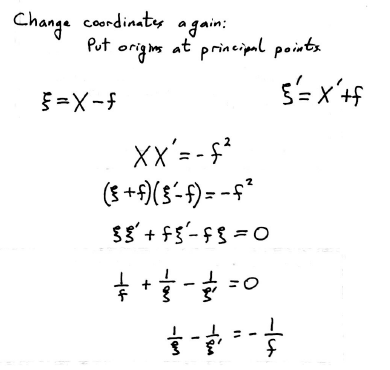 Change coordinates again:
Put origins at principal points.
ξ = X - f
ξ' = X' + f
XX' = -f²
(ξ + f)(ξ' - f) = -f²
ξξ' + fξ' - fξ = 0
1/f + 1/ξ - 1/ξ' = 0
1/ξ - 1/ξ' = -1/f